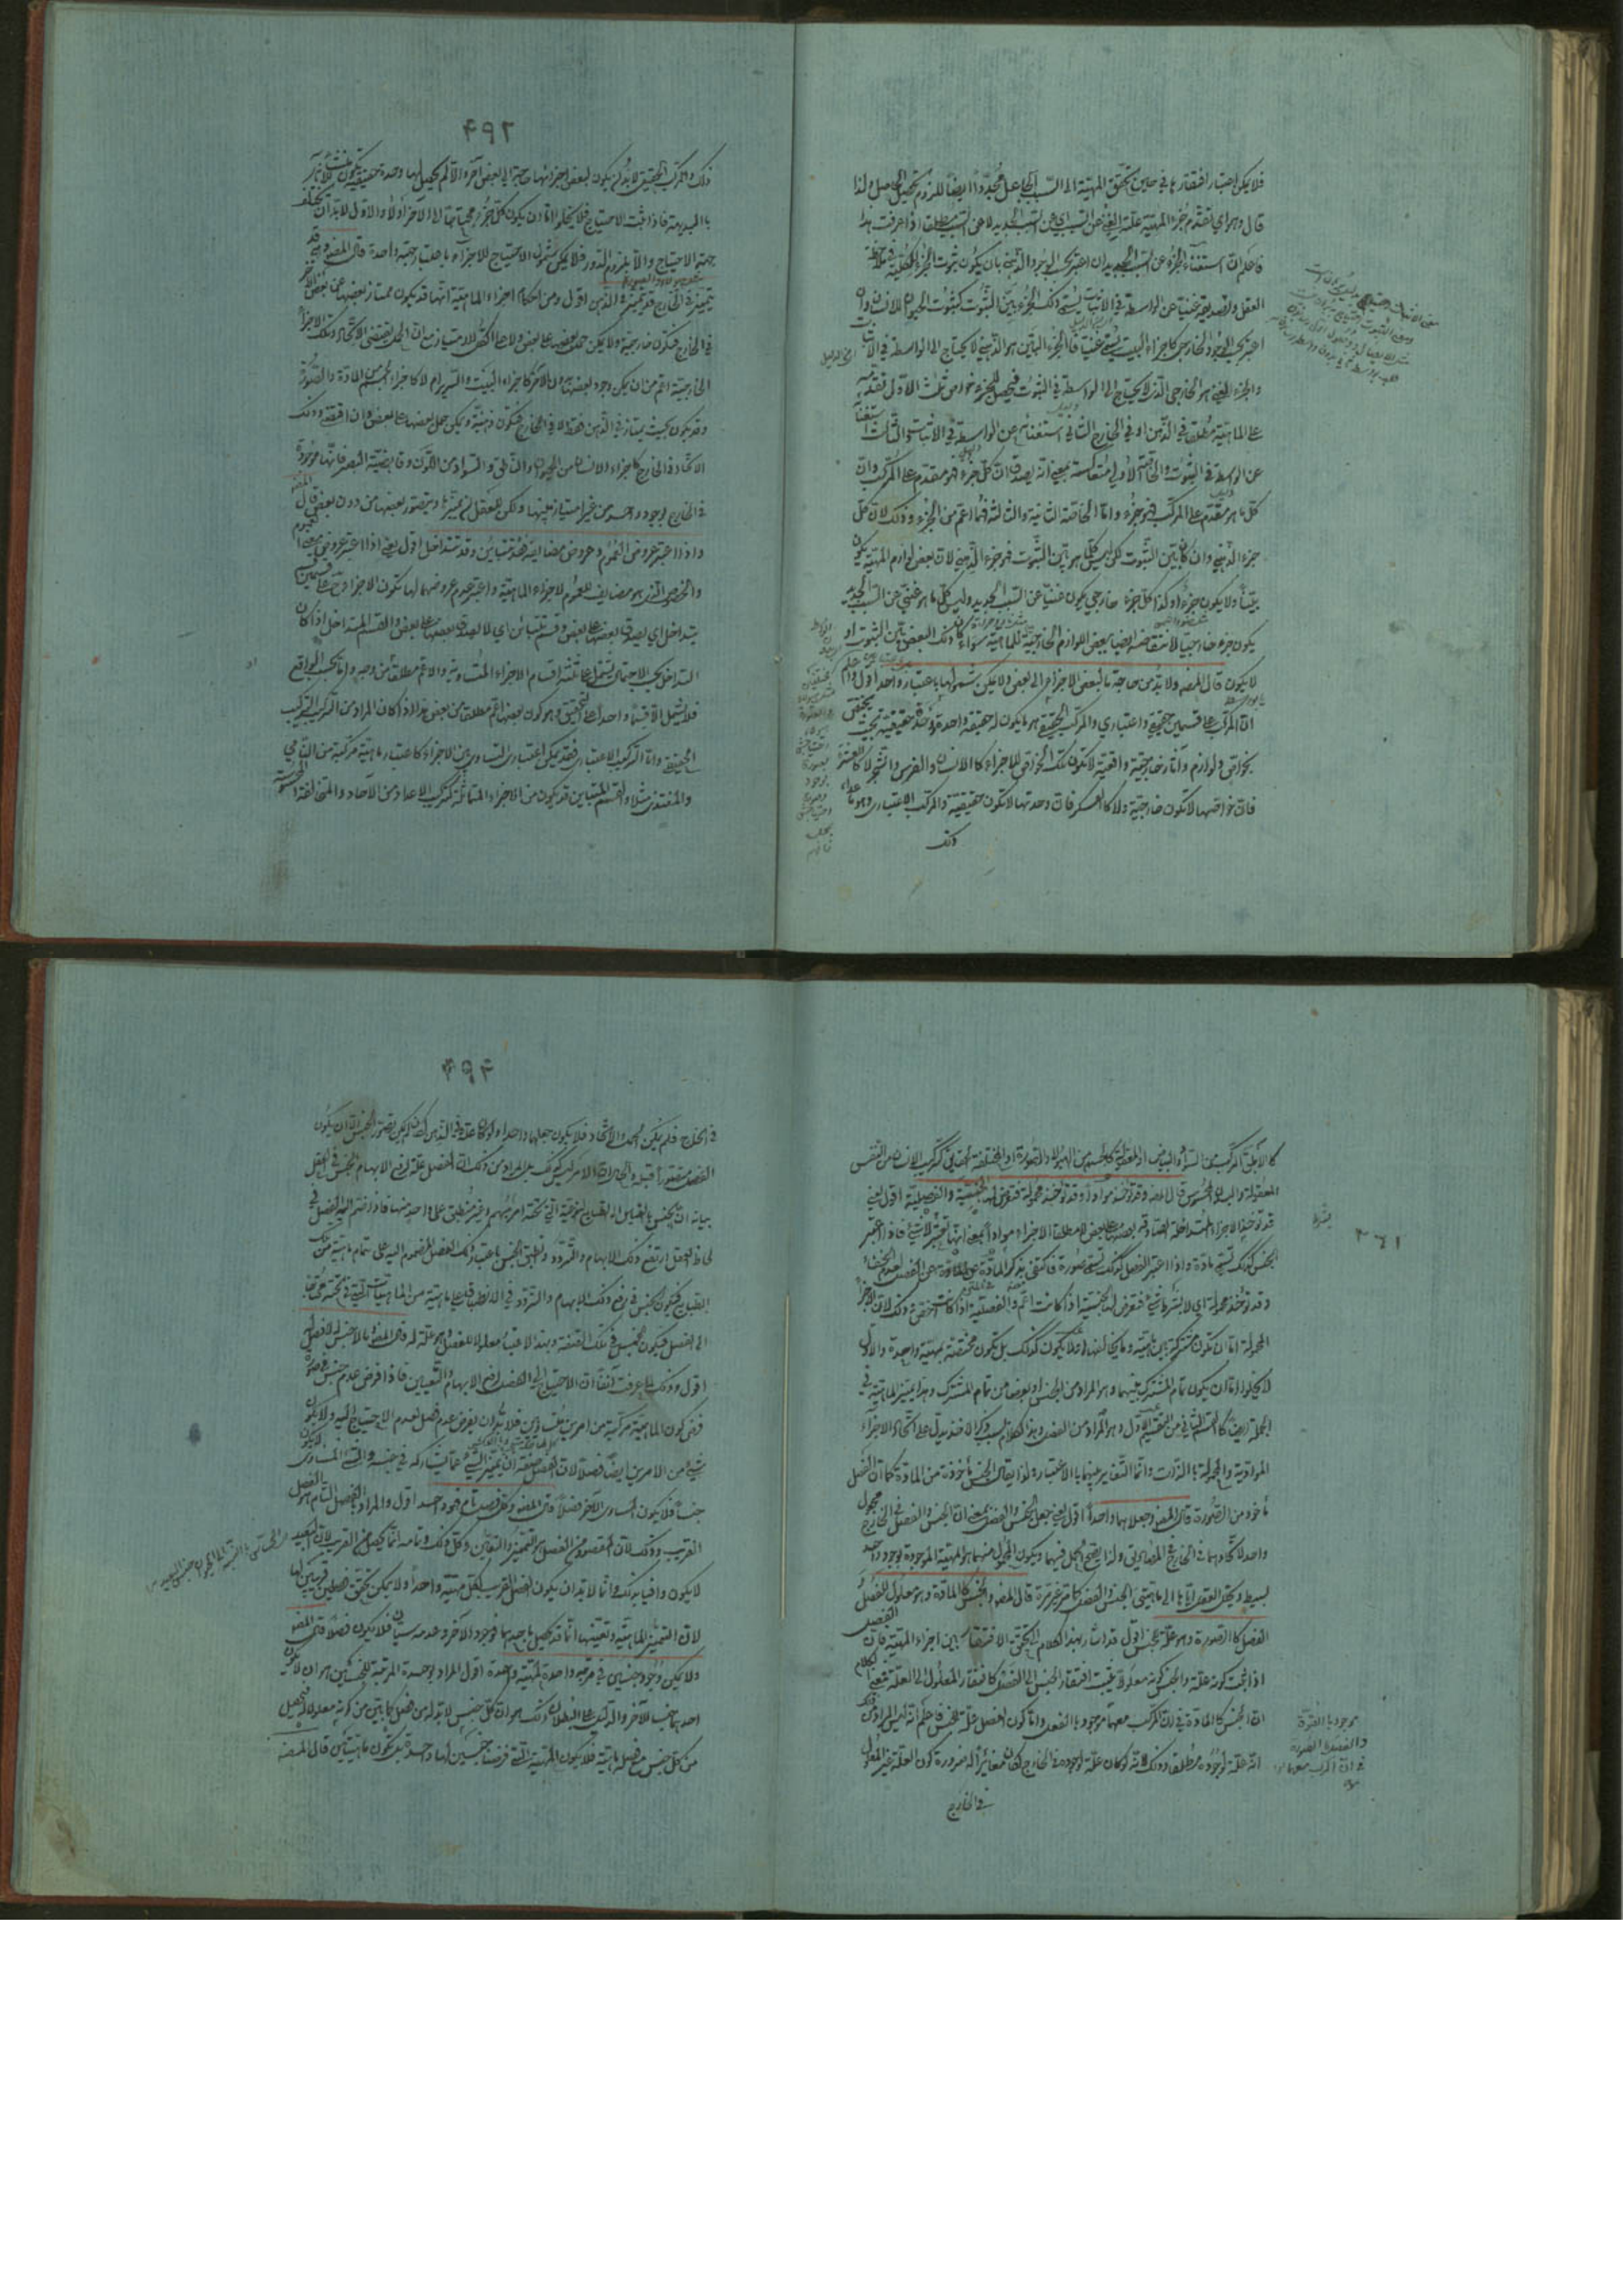 فلا يمكن اعتبار افتقارها في حين تحقق المهية الى السبب الجاعل مجددا ايضا للزوم تحصيل الحاصل ولذا
قال وهو اي تقدم جزء المهية علة الغنى عن السبب اي عن السبب الجديد لا عن السبب مطلقا اذا عرفت هذا
فاعلم ان استغناء الجزء عن السبب الجديد ان اعتبر بحسب الوجود الذهني بان يكون ثبوت الجزء للكل في ملاحظة
العقل والتصديق به غنية عن الواسطة في الاثبات يسمى ذلك الجزء بين الثبوت كثبوت الحيوان للانسان وان
اعتبر بحسب الوجود الخارجي كاجزاء البيت يسمى غنيا فالجزء البين هو الذهني لا يحتاج الى الواسطة في الاثبات
والجزء الغني هو الخارجي الذي لا يحتاج الى الواسطة في الثبوت فيحصل للجزء خواص ثلث الاول تقدمه
على الماهية مطلقا في الذهن او في الخارج الثاني استغناؤه عن الواسطة في الاثبات والثالث استغناؤه
عن الواسطة في الثبوت والخاصة الاولى متعاكسة بمعنى انه يصدق ان كل جزء فهو مقدم على المركب وان
كل ما هو مقدم على المركب فهو جزء واما الخاصة الثانية والثالثة فهما اعم من الجزء وذلك لان كل
جزء الذهني وان كان بين الثبوت لكن ليس كل ما هو بين الثبوت فهو جزء الذهني لان بعض لوازم المهية يكون
بينا ولا يكون جزءا وكذا كل جزء خارجي يكون غنيا عن السبب الجديد وليس كل ما هو غني عن السبب الجديد
يكون جزء خارجيا لانتقاضه ايضا ببعض اللوازم الخارجية للماهية سواء كان ذلك البعض بين الثبوت او
لا يكون قال المص ولا بد من حاجة ما لبعض الاجزاء الى بعض ولا يمكن شمولها باعتبار واحد اقول اعلم
ان المركب على قسمين حقيقي واعتباري والمركب الحقيقي هو ما يكون له حقيقة واحدة وحدة حقيقية بحيث يختص
بخواص ولوازم وآثار خارجية واقعية لا تكون تلك الخواص للاجزاء كالانسان والفرس والشجر لا كالعشرة
فان خواصها لا تكون خارجية ولا كالعسكر فان وحدتها لا تكون حقيقية والمركب الاعتباري هو ما عداه
ذلك
٤٩٢
ذلك والمركب الحقيقي لا بد ان يكون لبعض اجزائها حاجة الى بعض آخر والا لم يحصل لها وحدة حقيقية
بالبديهة فاذا ثبت الاحتياج فلا يخلو اما ان يكون كل جزء محتاجا الى الآخر او لا والاول لا بد ان تختلف
جهة الاحتياج والا يلزم الدور فلا يمكن شمول الاحتياج للاجزاء باعتبار جهة واحدة قال المص وهي قد
تتميز في الخارج وقد تتميز في الذهن اقول ومن احكام اجزاء الماهية انها قد يكون ممتازا بعضها عن بعض الآخر
في الخارج فتكون خارجية ولا يمكن حمل بعضها على بعض ولا على الكل للامتياز مع ان الحمل يقتضي الاتحاد وتلك الاجزاء
الخارجية اعم من ان يمكن وجود بعضها بدون الآخر كاجزاء البيت والسرير ام لا كاجزاء الجسم من المادة والصورة
وقد يكون بحيث يمتاز في الذهن فقط لا في الخارج فتكون ذهنية ويمكن حمل بعضها على بعض
الاتحاد في الخارج كاجزاء الانسان من الحيوان والناطق والسواد من اللون وقابضية البصر فانها موجودة
في الخارج بوجود واحد من غير امتياز بينها ولكن للعقل ان يميز ويتصور بعضها من دون بعض قال المص
واذا اعتبر عروض العموم وعروض مضايفه فقد تتباين وقد تتداخل اقول يعني اذا اعتبر عروض العموم
والخصوص الذي هو مضايف للعموم لاجزاء الماهية واعتبر عدم عروضهما لها تكون الاجزاء على قسمين قسم
يتداخل اي يصدق بعضها على بعض وقسم يتباين اي لا يصدق بعضها على بعض والقسم المتداخل اذا كان
التداخل بحسب الاحتمال يشتمل على ثلثة اقسام الاجزاء المتساوية والاعم مطلقا ومن وجه واما بحسب الواقع
فلا يشمل الا قسما واحدا على التحقيق وهو كون بعضها اعم مطلقا من بعض هذا اذا كان المراد من التركيب التركيب
الحقيقي واما التركيب الاعتباري فقد يمكن اعتبار التساوي بين الاجزاء كاعتبار ماهية مركبة من النامي
والمغتذي مثلا والقسم المتباين قد يكون من الاجزاء المتماثلة كتركيب الاعداد من الآحاد والمتخالفة المحسوسة
كالابلق المركب من السواد والبياض او المعقولة كالجسم من الهيولى والصورة او المختلفة كتركيب الانسان من النفس
المعقولة والبدن المحسوس قال المص وقد تؤخذ مواد وقد تؤخذ محمولة فتعرض لها الجنسية والفصلية اقول يعني
قد تؤخذ الاجزاء المتداخلة
الجنس كذلك تسمى مادة واذا اعتبر الفصل كذلك تسمى صورة فاكتفى بذكر المادة
وقد تؤخذ محمولة اي لا بشرط شيء فتعرض لها الجنسية اذا كانت اعم والفصلية اذا كانت اخص وذلك لان الاجزاء
المحمولة اما ان تكون مشتركة بين ماهية وما يخالفها او لا يكون كذلك بل تكون مختصة بمهية واحدة والاول
لا يخلو اما ان يكون تمام المشترك بينهما وهو المراد من الجنس او بعضا من تمام المشترك وهذا يميز الماهية في
الجملة
المواد والمحمولة بالذات وانما التغاير بينهما بالاعتبار ولذا يقال الجنس مأخوذة من المادة كما ان الفصل
مأخوذ من الصورة قال المص وجعلاهما واحد اقول يعني جعل الجنس والفصل بمعنى ان الجنس والفصل في الخارج مجعول
واحد لاتحادهما في الخارج ولذا يصح الحمل فيهما ويكون المجعول منهما هو المهية الموجودة بوجود واحد
بسيط ويحلل العقل اياها الى ماهيتي الجنس والفصل كما مر غير مرة قال المص والجنس كالمادة وهو معلول للفصل
الفصل كالصورة وهو علة للجنس اقول قد اشار بهذا الكلام الى تحقق الافتقار بين اجزاء المهية فان الفصل
اذا ثبت كونه علة والجنس كونه معلولا يثبت افتقار الجنس الى الفصل كافتقار المعلول الى العلة فمعنى الكلام
ان الجنس كالمادة في ان المركب معهما موجود بالفعل واما كون الفصل علة للجنس فاعلم انه ليس المراد من ذلك
انه علة لوجوده مطلقا وذلك لانه لو كان علة لوجوده في الخارج لكان مغايرا له ضرورة كون العلة غير المعلول
في الخارج
٣٦١
٤٩٤
في الخارج فلم يمكن الحمل والاتحاد فلا يكون جعلهما واحدا ولو كان علة في الذهن لم يمكن تصور الجنس الا ان يكون
الفصل متصورا قبله والحال ان الامر ليس كذلك بل المراد من ذلك ان الفصل علة لرفع الابهام الجنس في العقل
بيانه ان الجنس بالقياس الى الطبايع النوعية التي تحته امر مبهم وغير منطبق على واحد منها فاذا انضم اليه الفصل في
لحاظ العقل ارتفع ذلك الابهام والتردد وانطبق الجنس باعتبار ذلك الفصل المضموم اليه على تمام ماهية من تلك
الطبايع فيكون الجنس في رفع ذلك الابهام والتردد في الانطباق على ماهية من الماهيات التي تحته محتاجا
الى الفصل فيكون الجنس في تلك الصفة وبهذا الاعتبار معلولا للفصل وهو علة له قال المص وما لا جنس له لا فصل له
اقول وذلك لما عرفت آنفا ان الاحتياج الى الفصل لرفع الابهام والتعيين فاذا فرض عدم جنس في صورة
فرض كون الماهية مركبة من امرين متساويين فلا بد ان يفرض عدم فصل لعدم الاحتياج اليه ولا يكون
شيء من الامرين ايضا فصلا لان الفصل صفته ان يميز الشيء عما يشاركه في جنسه والشيء المساوي لا يكون
جنسا فلا يكون المساوي الآخر فصلا قال المص وكل فصل تام فهو واحد اقول والمراد بالفصل التام هو الفصل
القريب وذلك لان المقصود من الفصل هو التميز والتعين وكل ذلك وتمامه انما يحصل من القريب لان البعيد
لا يكون وافيا بذلك وانما لا بد ان يكون الفصل القريب لكل مهية واحدا ولا يمكن تحقق فصلين قريبين لها
لان التميز الماهية وتعينها انما قد يحصل باحدهما فوجود الآخر وعدمه سيان فلا يكون فصلا قال المص
ولا يمكن وجود جنسين في مرتبة واحدة لمهية واحدة اقول المراد بوحدة المرتبة للجنسين هو ان لا يكون
احدهما جنسا للآخر والدليل على البطلان ذلك هو ان كل جنس لا بد له من فصل كما تبين من كونه معلولا له فيحصل
من كل جنس مع فصل ماهية فلا يكون المهية التي فرضنا جنسين لها واحدة بل تكون ماهيتين قال المص